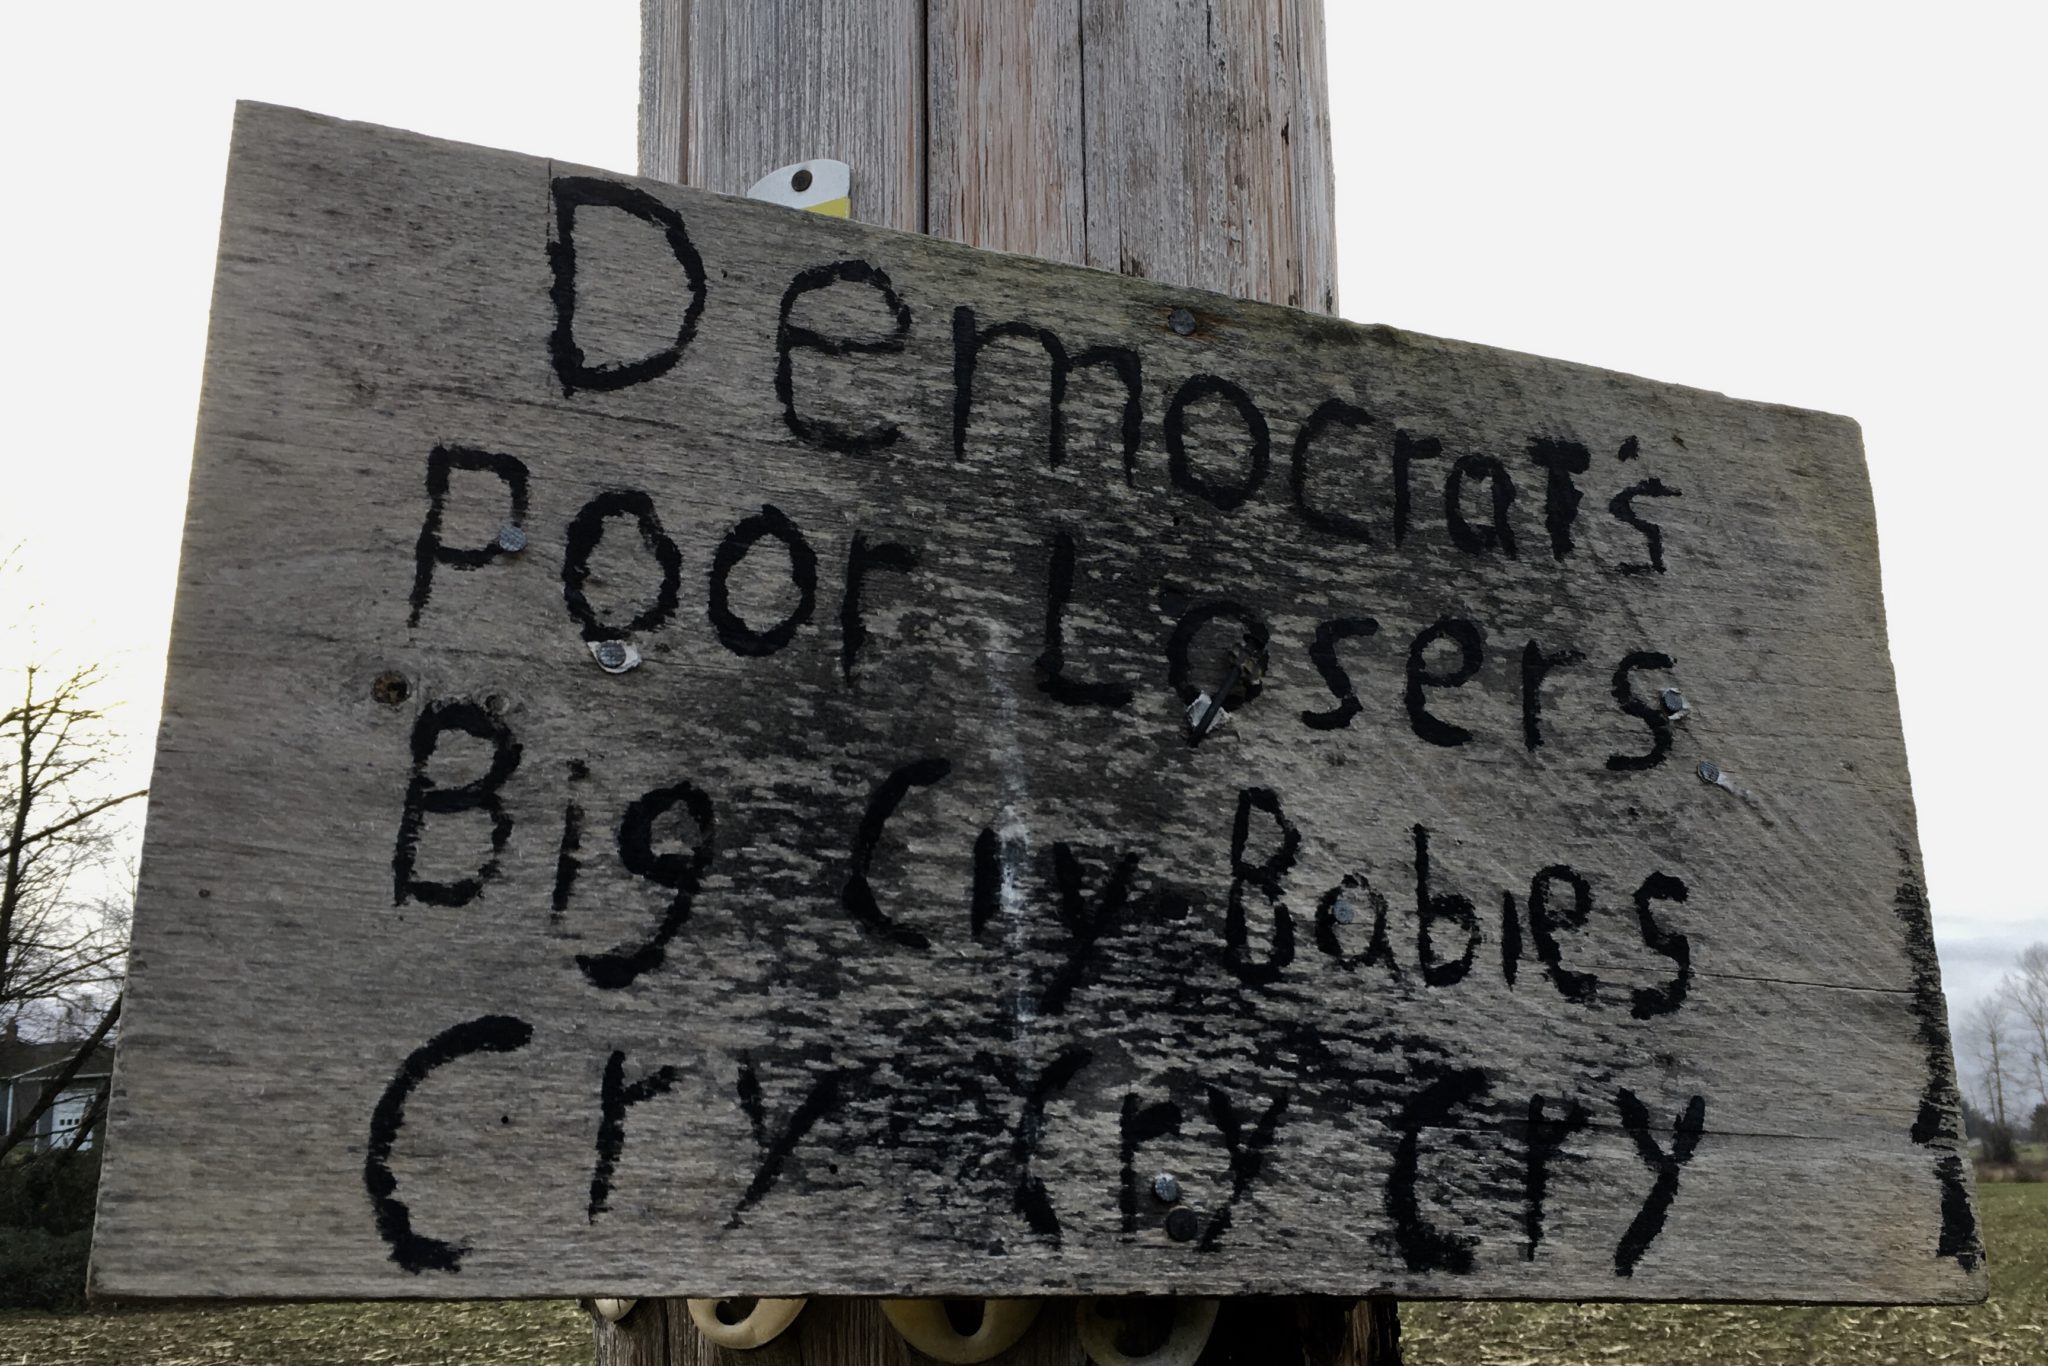 Democrat's
Poor Losers
Big Cry Babies
Cry Cry Cry